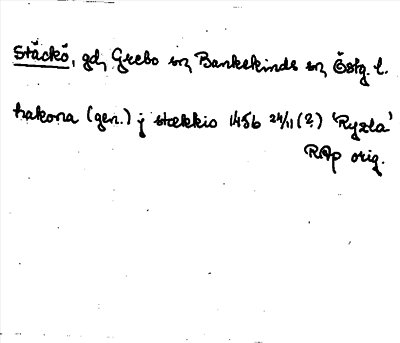 Stäckö, gd, Grebo sn, Bankekinds sn, Östg. l.
hakona (gen.) j stækkio 1456 24/11 (?) 'Ryzla'
RAp orig.